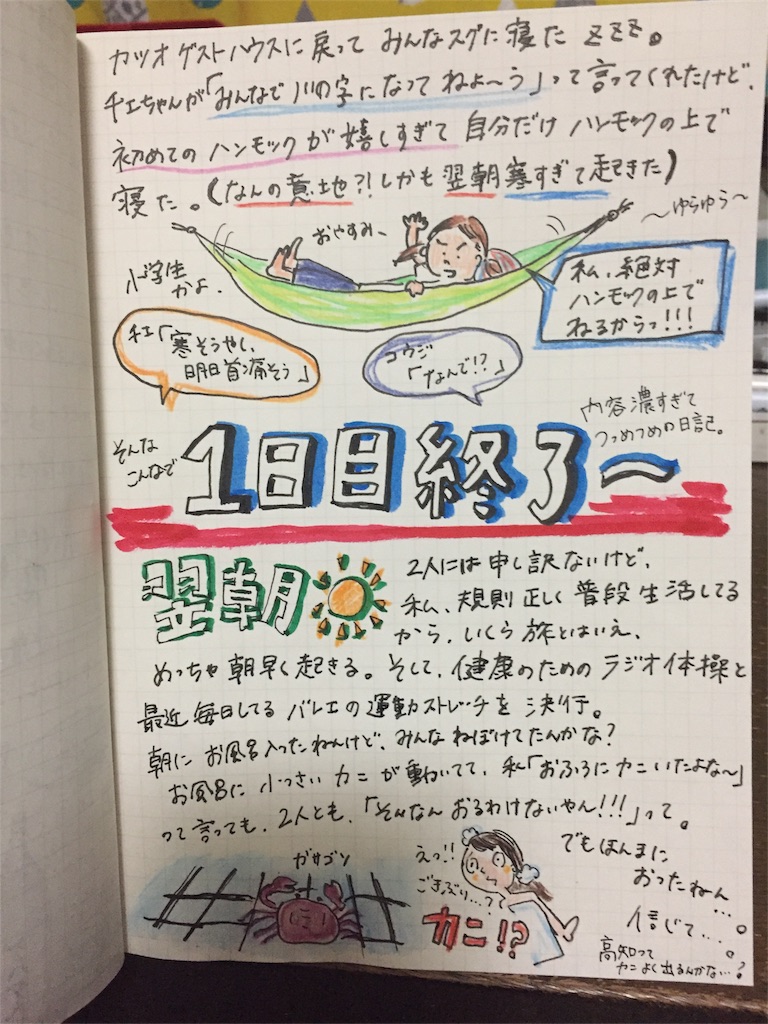 カツオゲストハウスに戻って みんなスグに寝た zzz。
チエちゃんが「みんなで川の字になって ねよ〜う」って言ってくれたけど、
初めてのハンモックが嬉しすぎて自分だけ ハンモックの上で
寝た。(なんの意地?!しかも翌朝寒すぎて起きた)
〜ゆらゆら〜
おやすみ、
小学生
かよ、
私、絶対
ハンモックの上で
ねるからっ!!!
チエ「寒そうやし、
明日首痛そう」
コウジ
「なんで!?」
内容濃すぎて
つめつめの日記。
そんな
こんなで
1日目終了〜
翌朝
2人には申し訳ないけど、
私、規則正しく普段生活してる
から、いくら旅とはいえ、
めっちゃ朝早く起きる。そして、健康のためのラジオ体操と
最近毎日してるバレエの運動ストレッチを決行。
朝にお風呂入ったねんけど、みんなねぼけてたんかな?
お風呂に小っさいカニが動いてて、私「おふろにカニいたよな〜」
って言っても、2人とも、「そんなんおるわけないやん!!!」って。
ガサゴソ
えっ!!
ごきぶり...って
カニ!?
でもほんまに
おったねん
...。
信じて....。
高知って
カニよく出るんかな...?